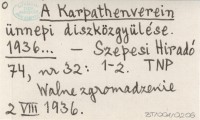 A Karpathenverein
ünnepi diszközgyülése.
1936... — Szepesi Hiradó
74, nr 32: 1-2. TNP
Walne zgromadzenie
2 VIII 1936.